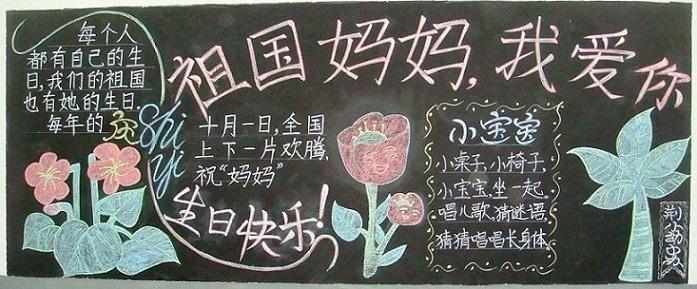 祖国妈妈,我爱你
每个人
都有自己的生
日,我们的祖国
也有她的生日.
每年的
Shi
yi
十月一日,全国
上下一片欢腾,
祝“妈妈”
生日快乐!
小宝宝
小桌子,小椅子,
小宝宝,坐一起
唱儿歌,猜谜语,
猜猜唱唱长身体.